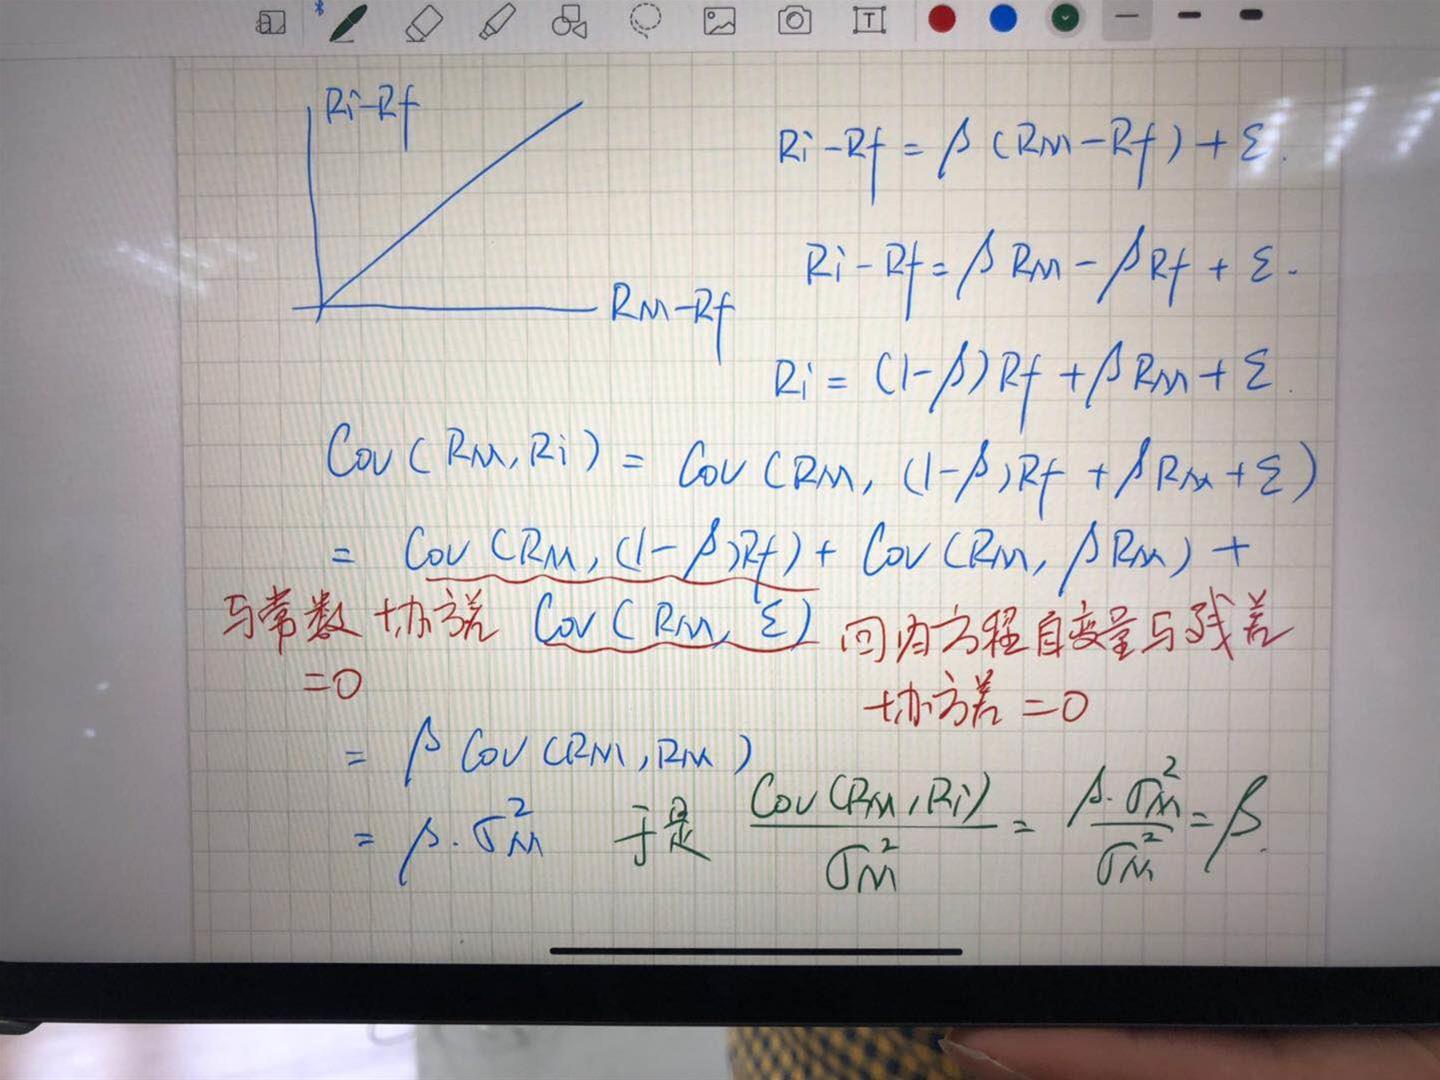 Ri-Rf
RM-Rf
Ri-Rf = β(RM-Rf)+ε.
Ri-Rf = βRM-βRf+ε.
Ri = (1-β)Rf+βRM+ε.
Cov(RM,Ri) = Cov(RM, (1-β)Rf+βRM+ε)
= Cov(RM,(1-β)Rf)+Cov(RM,βRM)+
与常数协方差 Cov(RM, ε) 回内方程自变量与残差
=0 协方差=0
= βCov(RM,RM)
= β·σM² 于是 Cov(RM,Ri)/σM² = β·σM²/σM² = β.